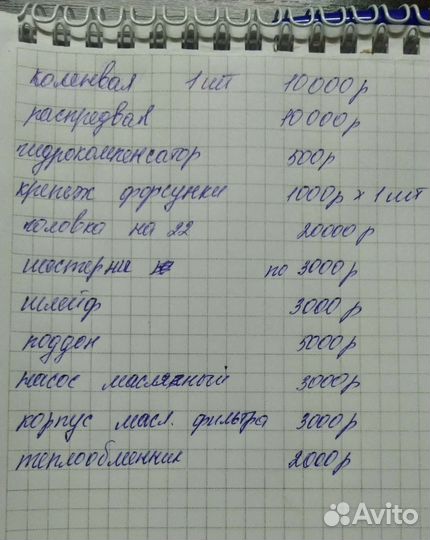 коленвал 1 шт 10000р
распредвал 10000р
гидрокомпенсатор 500р
крепеж форсунки 1000р х 1 шт
головка на 22 20000р
шестерни по 3000р
шлейф 3000р
поддон 5000р
насос масляный 3000р
корпус масл. фильтра 3000р
теплообменник 2000р
Avito